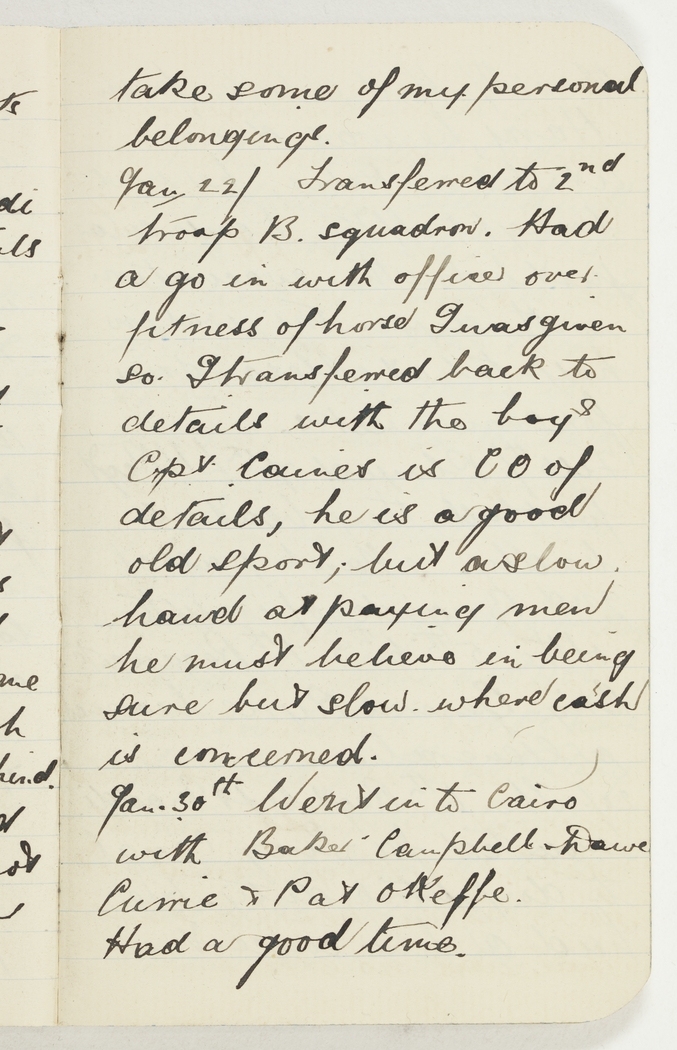 take some of my personal
belongings.
Jan 22/ Transferred to 2nd
troop B. squadron. Had
a go in with officer over
fitness of horse I was given
so. I transferred back to
details with the boys
Cpt. Caines is CO of
details, he is a good
old sport; but a slow
hand at paying men
he must believe in being
sure but slow. where cash
is concerned.
Jan. 30th Went in to Cairo
with Baker Campbell
Currie & Pat OKeffe.
Had a good time.